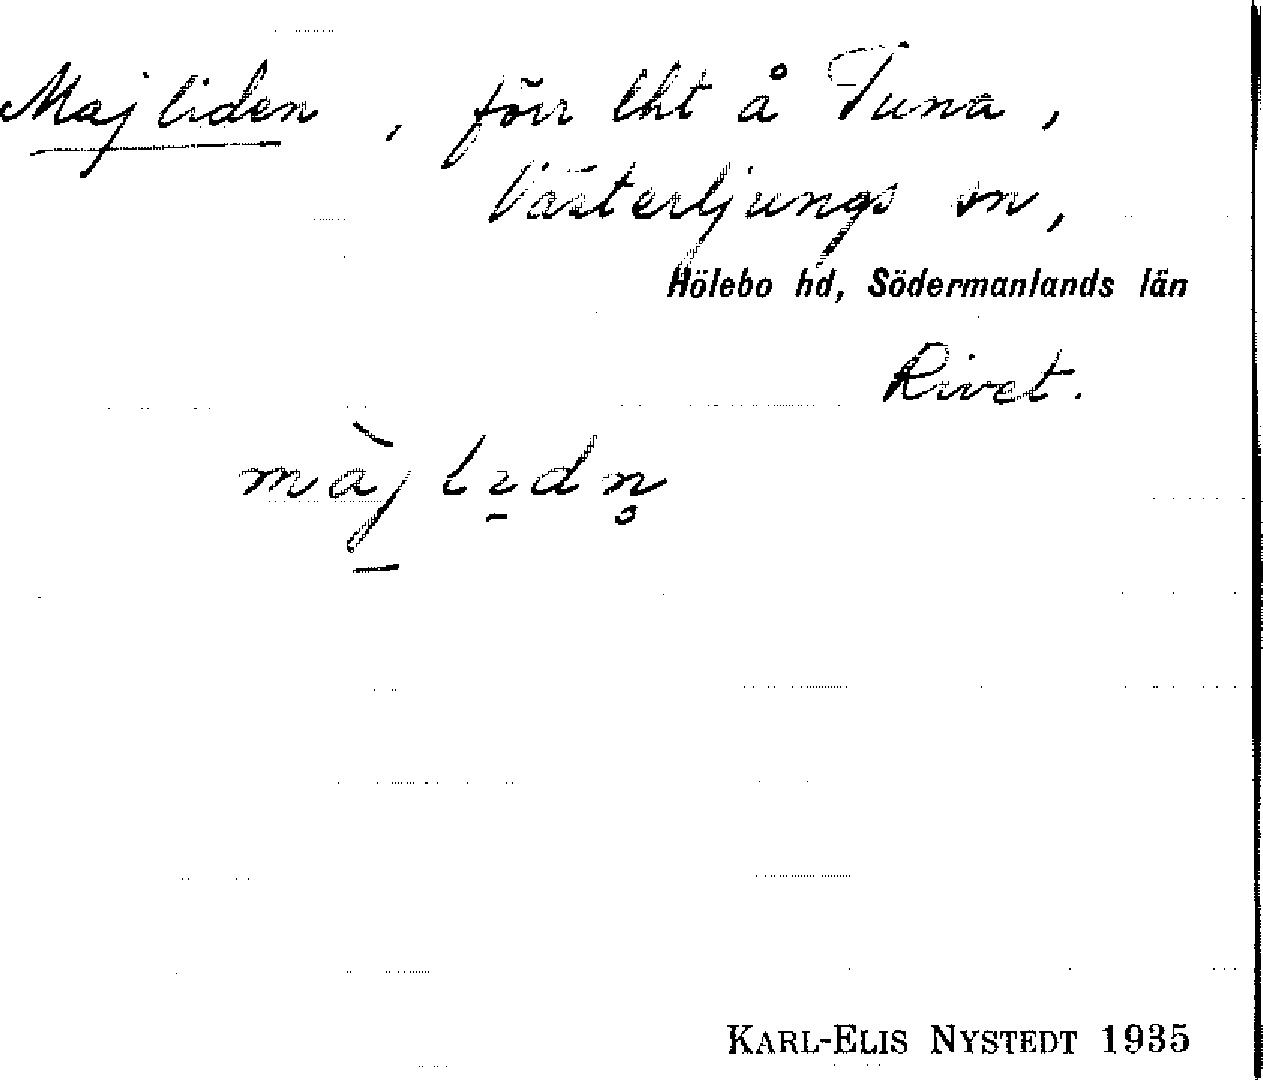 Majliden, förr lht å Tuna,
Västerljungs sn,
Hölebo hd, Södermanlands län
Rivet.
KARL-ELIS NYSTEDT 1935